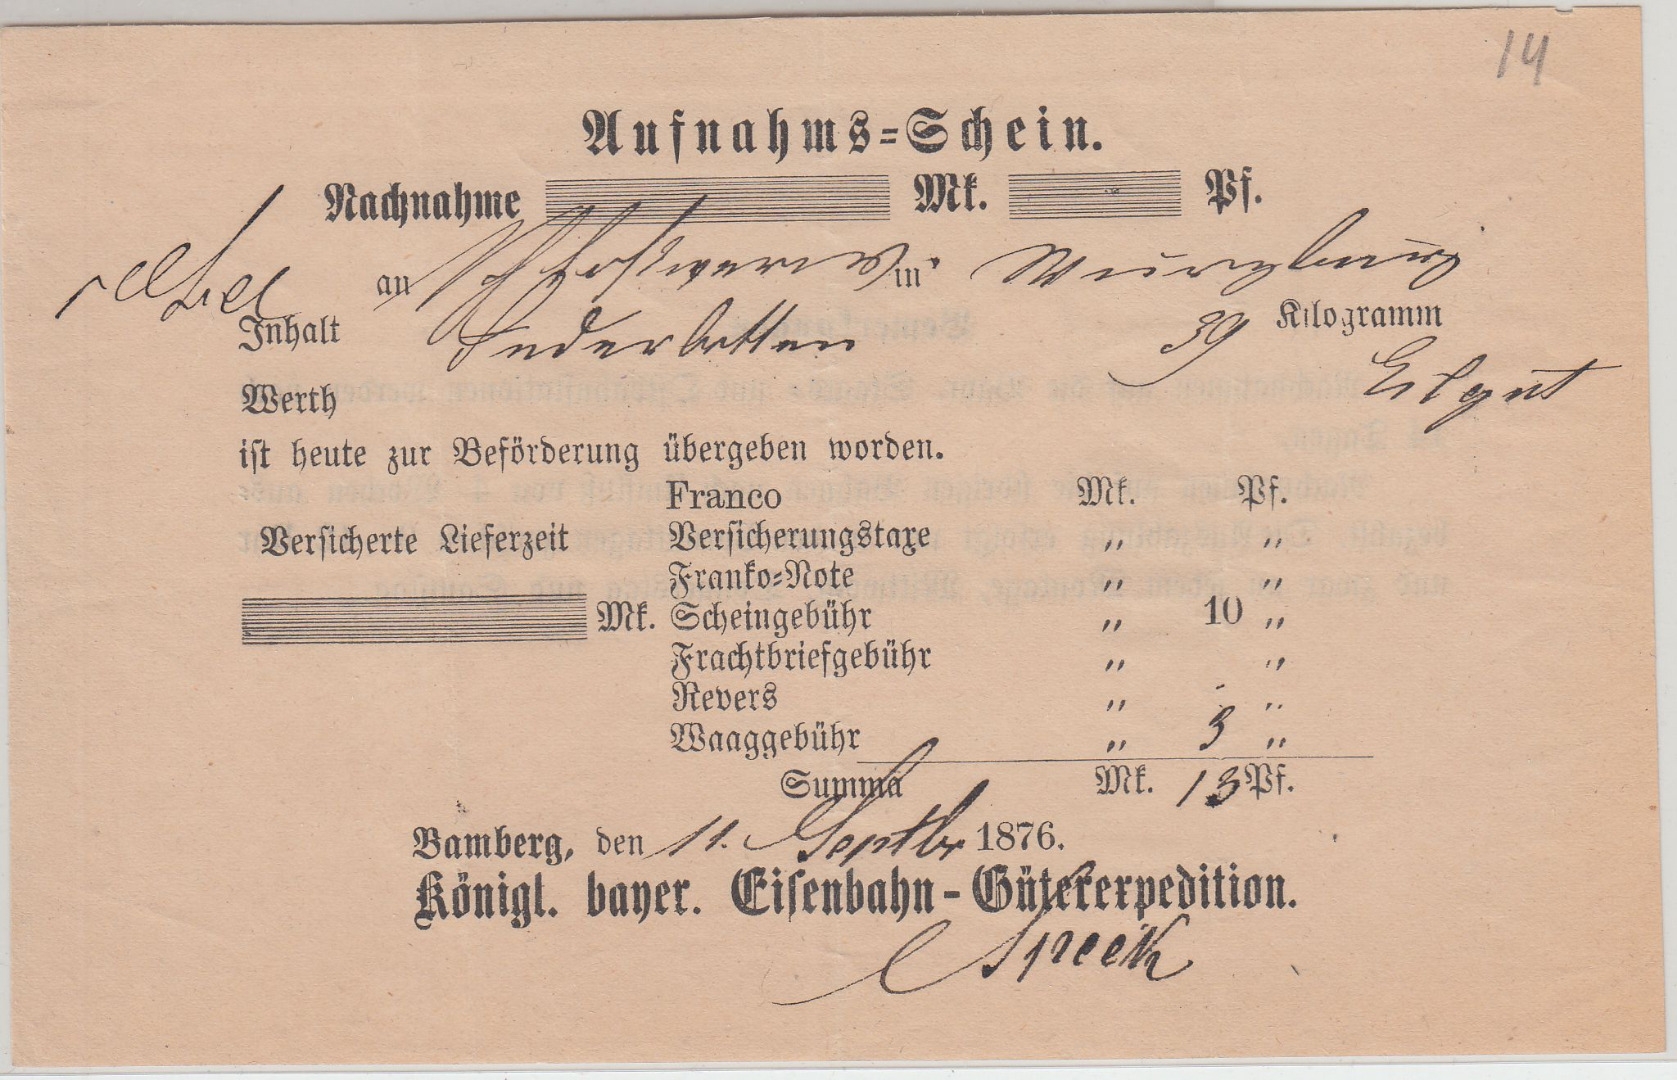 14
Aufnahms-Schein.
Nachnahme Mk. Pf.
an in Würzburg
Inhalt Federbetten 39 Kilogramm
Eilgut
Werth
ist heute zur Beförderung übergeben worden.
Franco Mk. Pf.
Versicherte Lieferzeit Versicherungstaxe „ „
Franko-Note „ „
Mk. Scheingebühr „ 10 „
Frachtbriefgebühr „ „
Revers „ „
Waaggebühr „ 3 „
Summa Mk. 13 Pf.
Bamberg, den 11. Septbr 1876.
Königl. bayer. Eisenbahn-Güterexpedition.